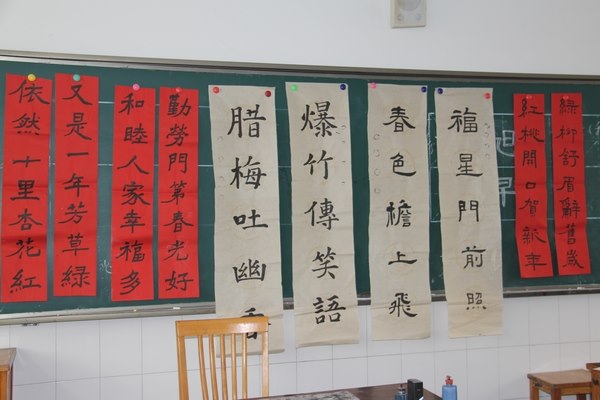 綠柳舒眉辭舊歲
紅桃開口賀新年
福星門前照
春色檐上飛
爆竹傳笑語
腊梅吐幽香
勤勞門第春光好
和睦人家幸福多
又是一年芳草綠
依然十里杏花紅